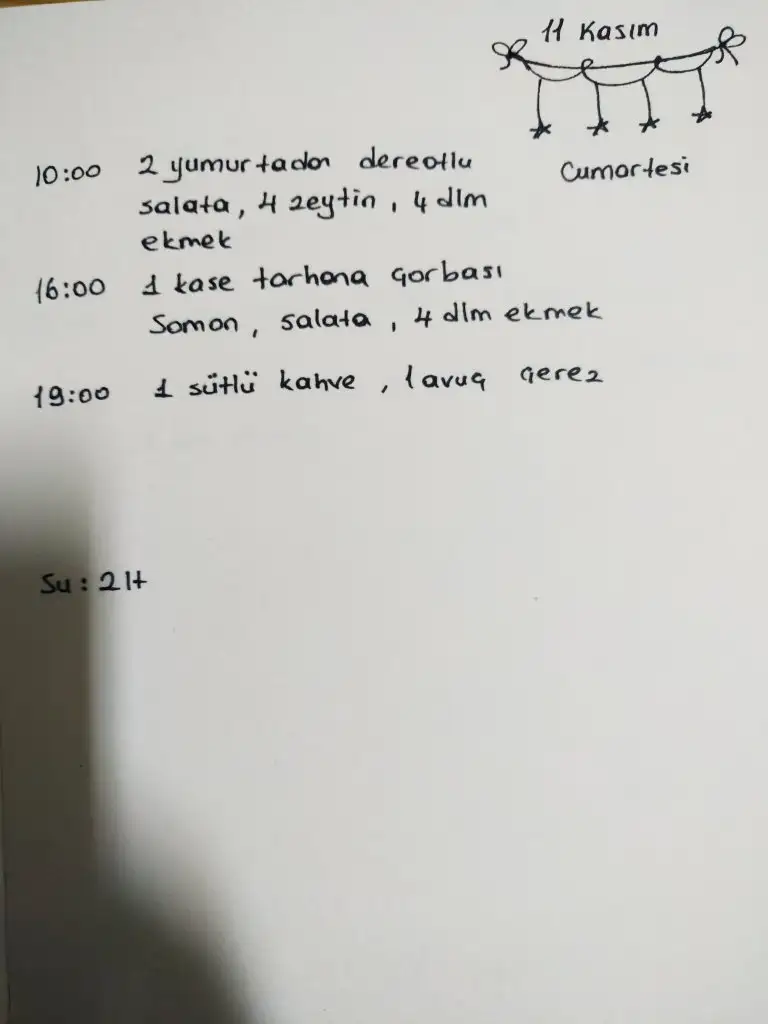 11 Kasım
Cumartesi
10:00 2 yumurtadan dereotlu
salata, 4 zeytin, 4 dlm
ekmek
16:00 1 kase tarhana çorbası
Somon, salata, 4 dlm ekmek
19:00 1 sütlü kahve, 1 avuç çerez
Su: 2 lt